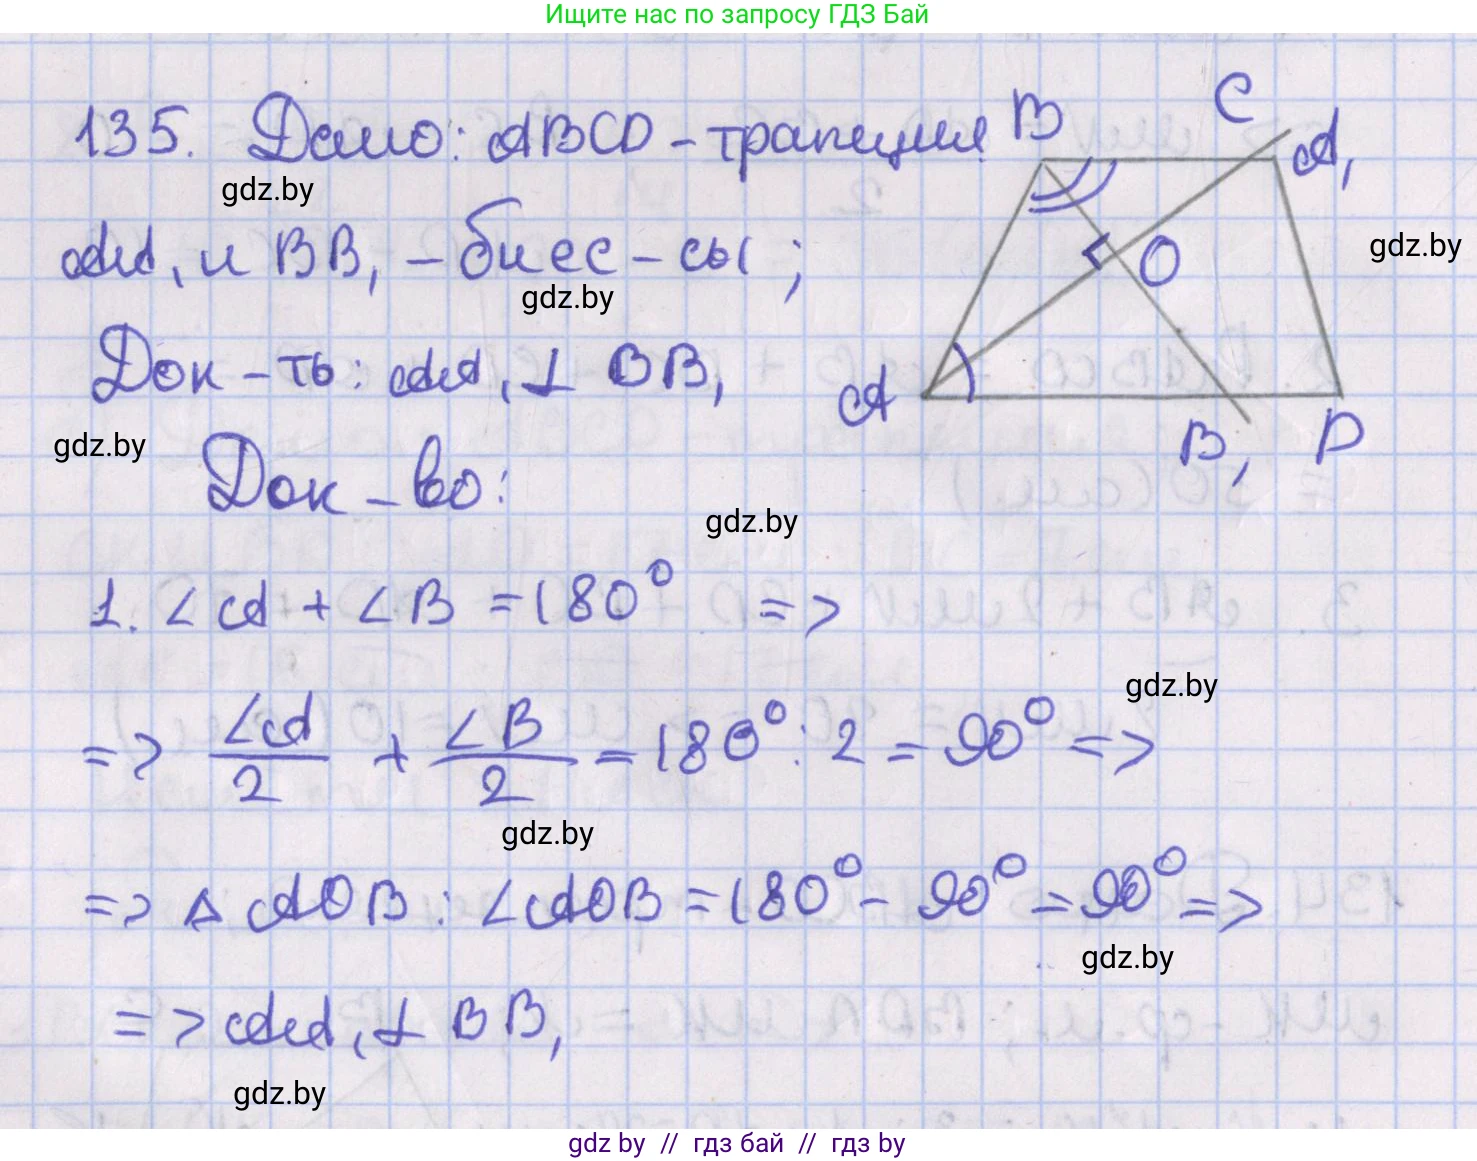 Ищите нас по запросу ГДЗ Бай
135. Дано: ABCD - трапеция
gdz.by
AA₁ и BB₁ - биес-сы;
gdz.by
Док-ть: AA₁ ⊥ BB₁
gdz.by
Док-во:
gdz.by
B
C
A₁
gdz.by
O
A
B₁
D
1. ∠A + ∠B = 180° =>
gdz.by
=> ∠A/2 + ∠B/2 = 180° : 2 = 90° =>
gdz.by
=> △ AOB : ∠AOB = 180° - 90° = 90° =>
gdz.by
=> AA₁ ⊥ BB₁
gdz.by
gdz by // гдз бай // гдз by